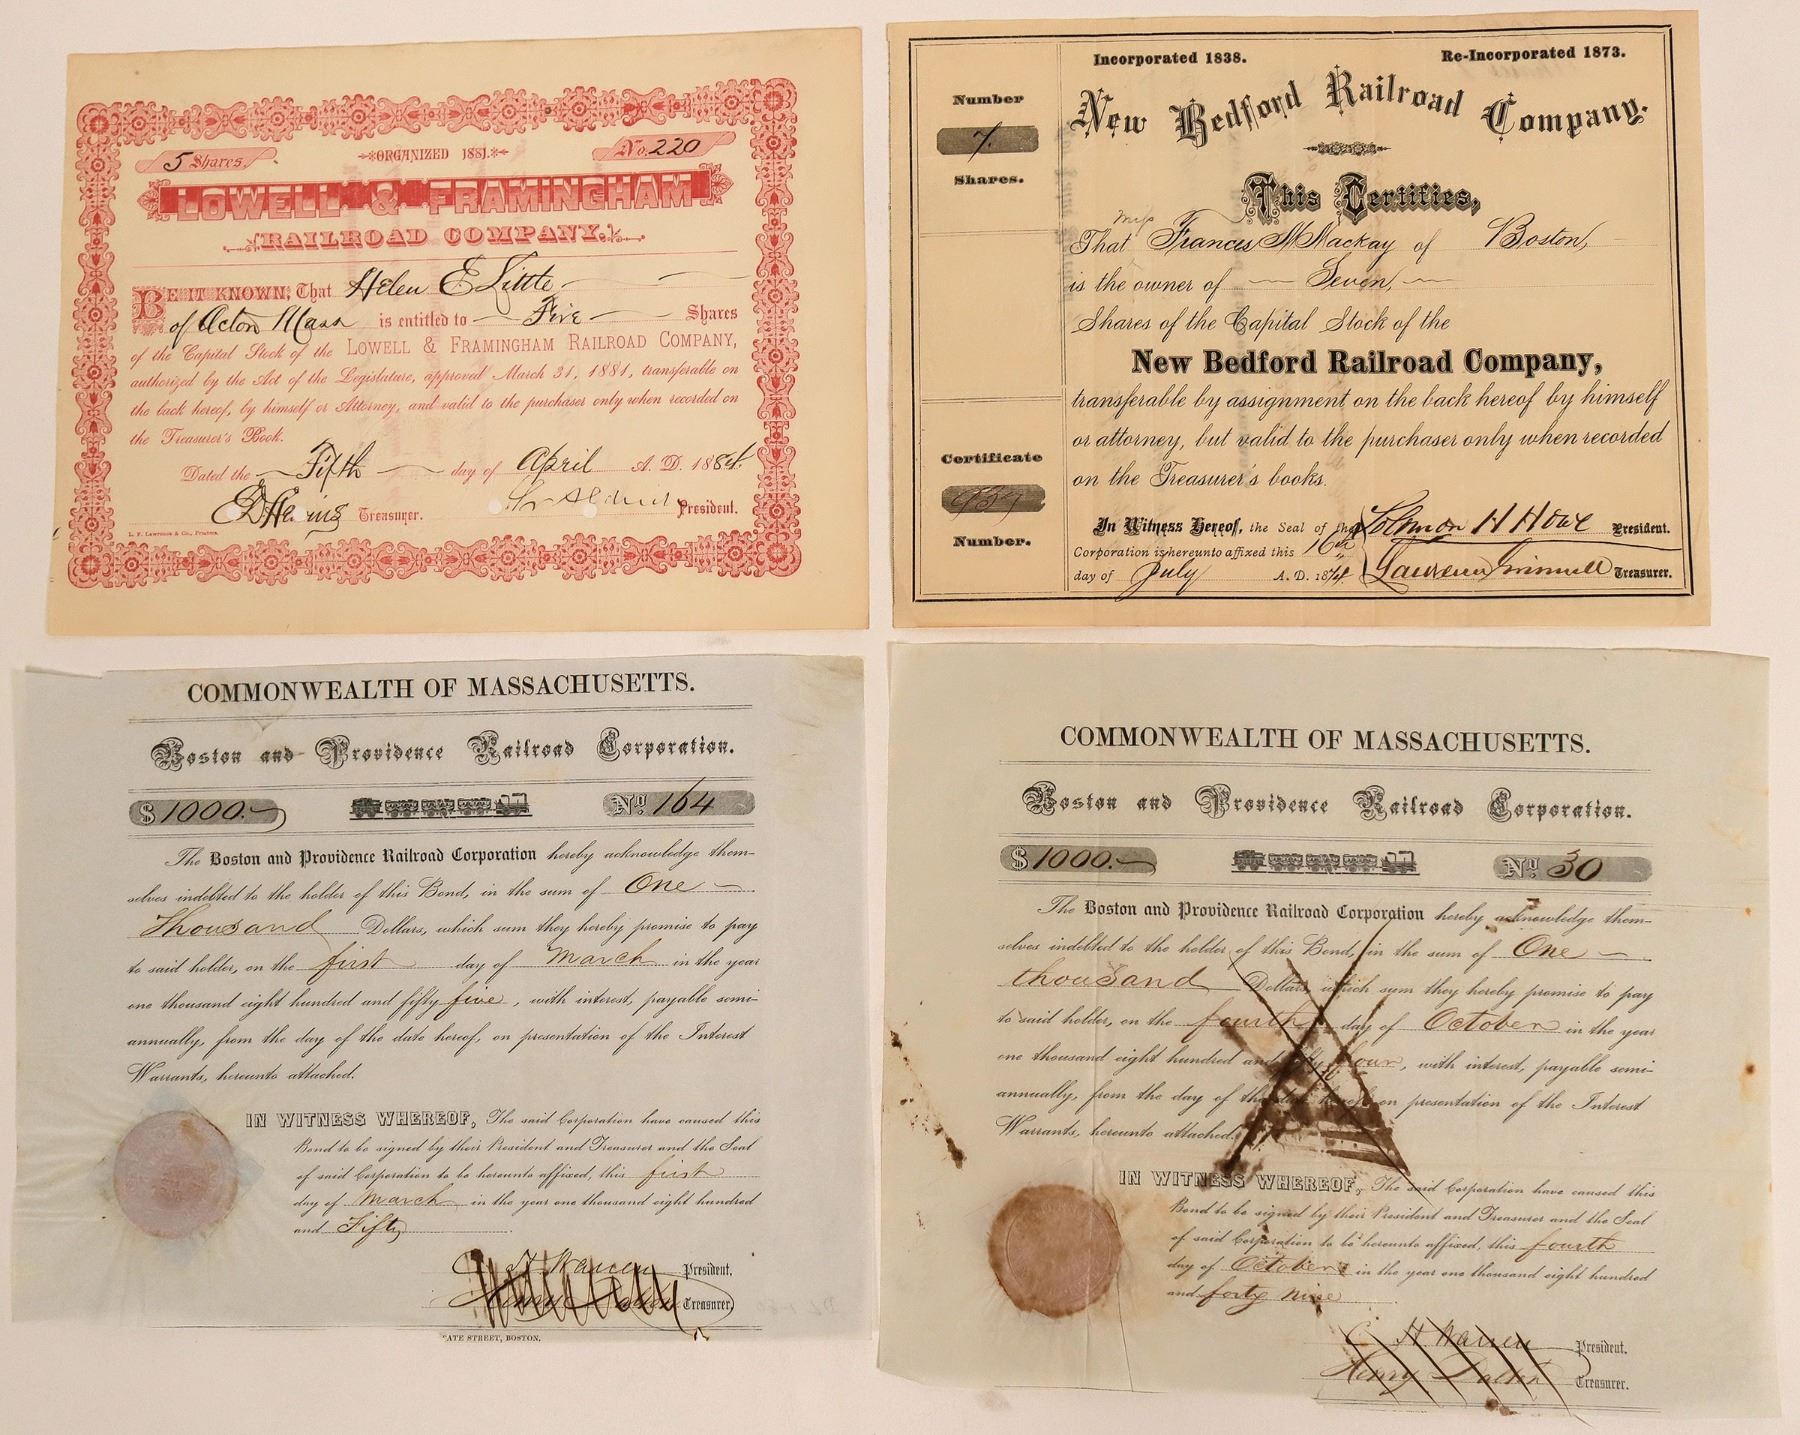 5 Shares
ORGANIZED 1881.
No. 220
LOWELL & FRAMINGHAM
RAILROAD COMPANY.
BE IT KNOWN, That Helen E Little
of Acton Mass is entitled to Five Shares
of the Capital Stock of the LOWELL & FRAMINGHAM RAILROAD COMPANY,
authorized by the Act of the Legislature, approved March 31, 1881, transferable on
the back hereof, by himself or Attorney, and valid to the purchaser only when recorded on
the Treasurer's Book.
Dated the Fifth day of April A. D. 1884.
Treasurer. President.
L. F. Lawrence & Co., Printers.
Incorporated 1838. Re-Incorporated 1873.
New Bedford Railroad Company.
Number
7.
Shares.
This Certifies,
That Francis M Mackay of Boston,
is the owner of Seven,
Shares of the Capital Stock of the
New Bedford Railroad Company,
transferable by assignment on the back hereof by himself
or attorney, but valid to the purchaser only when recorded
on the Treasurer's books.
Certificate
959
Number.
In Witness Hereof, the Seal of the
Corporation is hereunto affixed this 16th
day of July A. D. 1874.
Solomon H Howe President.
Lawrence Grinnell Treasurer.
COMMONWEALTH OF MASSACHUSETTS.
Boston and Providence Railroad Corporation.
$ 1000.
No 164
The Boston and Providence Railroad Corporation hereby acknowledge them-
selves indebted to the holder of this Bond, in the sum of One
Thousand Dollars, which sum they hereby promise to pay
to said holder, on the first day of March in the year
one thousand eight hundred and fifty five, with interest, payable semi-
annually, from the day of the date hereof, on presentation of the Interest
Warrants, hereunto attached.
IN WITNESS WHEREOF, The said Corporation have caused this
Bond to be signed by their President and Treasurer and the Seal
of said Corporation to be hereunto affixed, this first
day of March in the year one thousand eight hundred
and Fifty
C H Warren President.
Henry Dalton Treasurer.
ATE STREET, BOSTON.
COMMONWEALTH OF MASSACHUSETTS.
Boston and Providence Railroad Corporation.
$ 1000.
No. 30
The Boston and Providence Railroad Corporation hereby acknowledge them-
selves indebted to the holder of this Bond, in the sum of One
thousand Dollars, which sum they hereby promise to pay
to said holder, on the fourth day of October in the year
one thousand eight hundred and fifty four, with interest, payable semi-
annually, from the day of the date hereof, on presentation of the Interest
Warrants, hereunto attached.
IN WITNESS WHEREOF, The said Corporation have caused this
Bond to be signed by their President and Treasurer and the Seal
of said Corporation to be hereunto affixed, this fourth
day of October in the year one thousand eight hundred
and forty nine
C H Warren President.
Henry Dalton Treasurer.